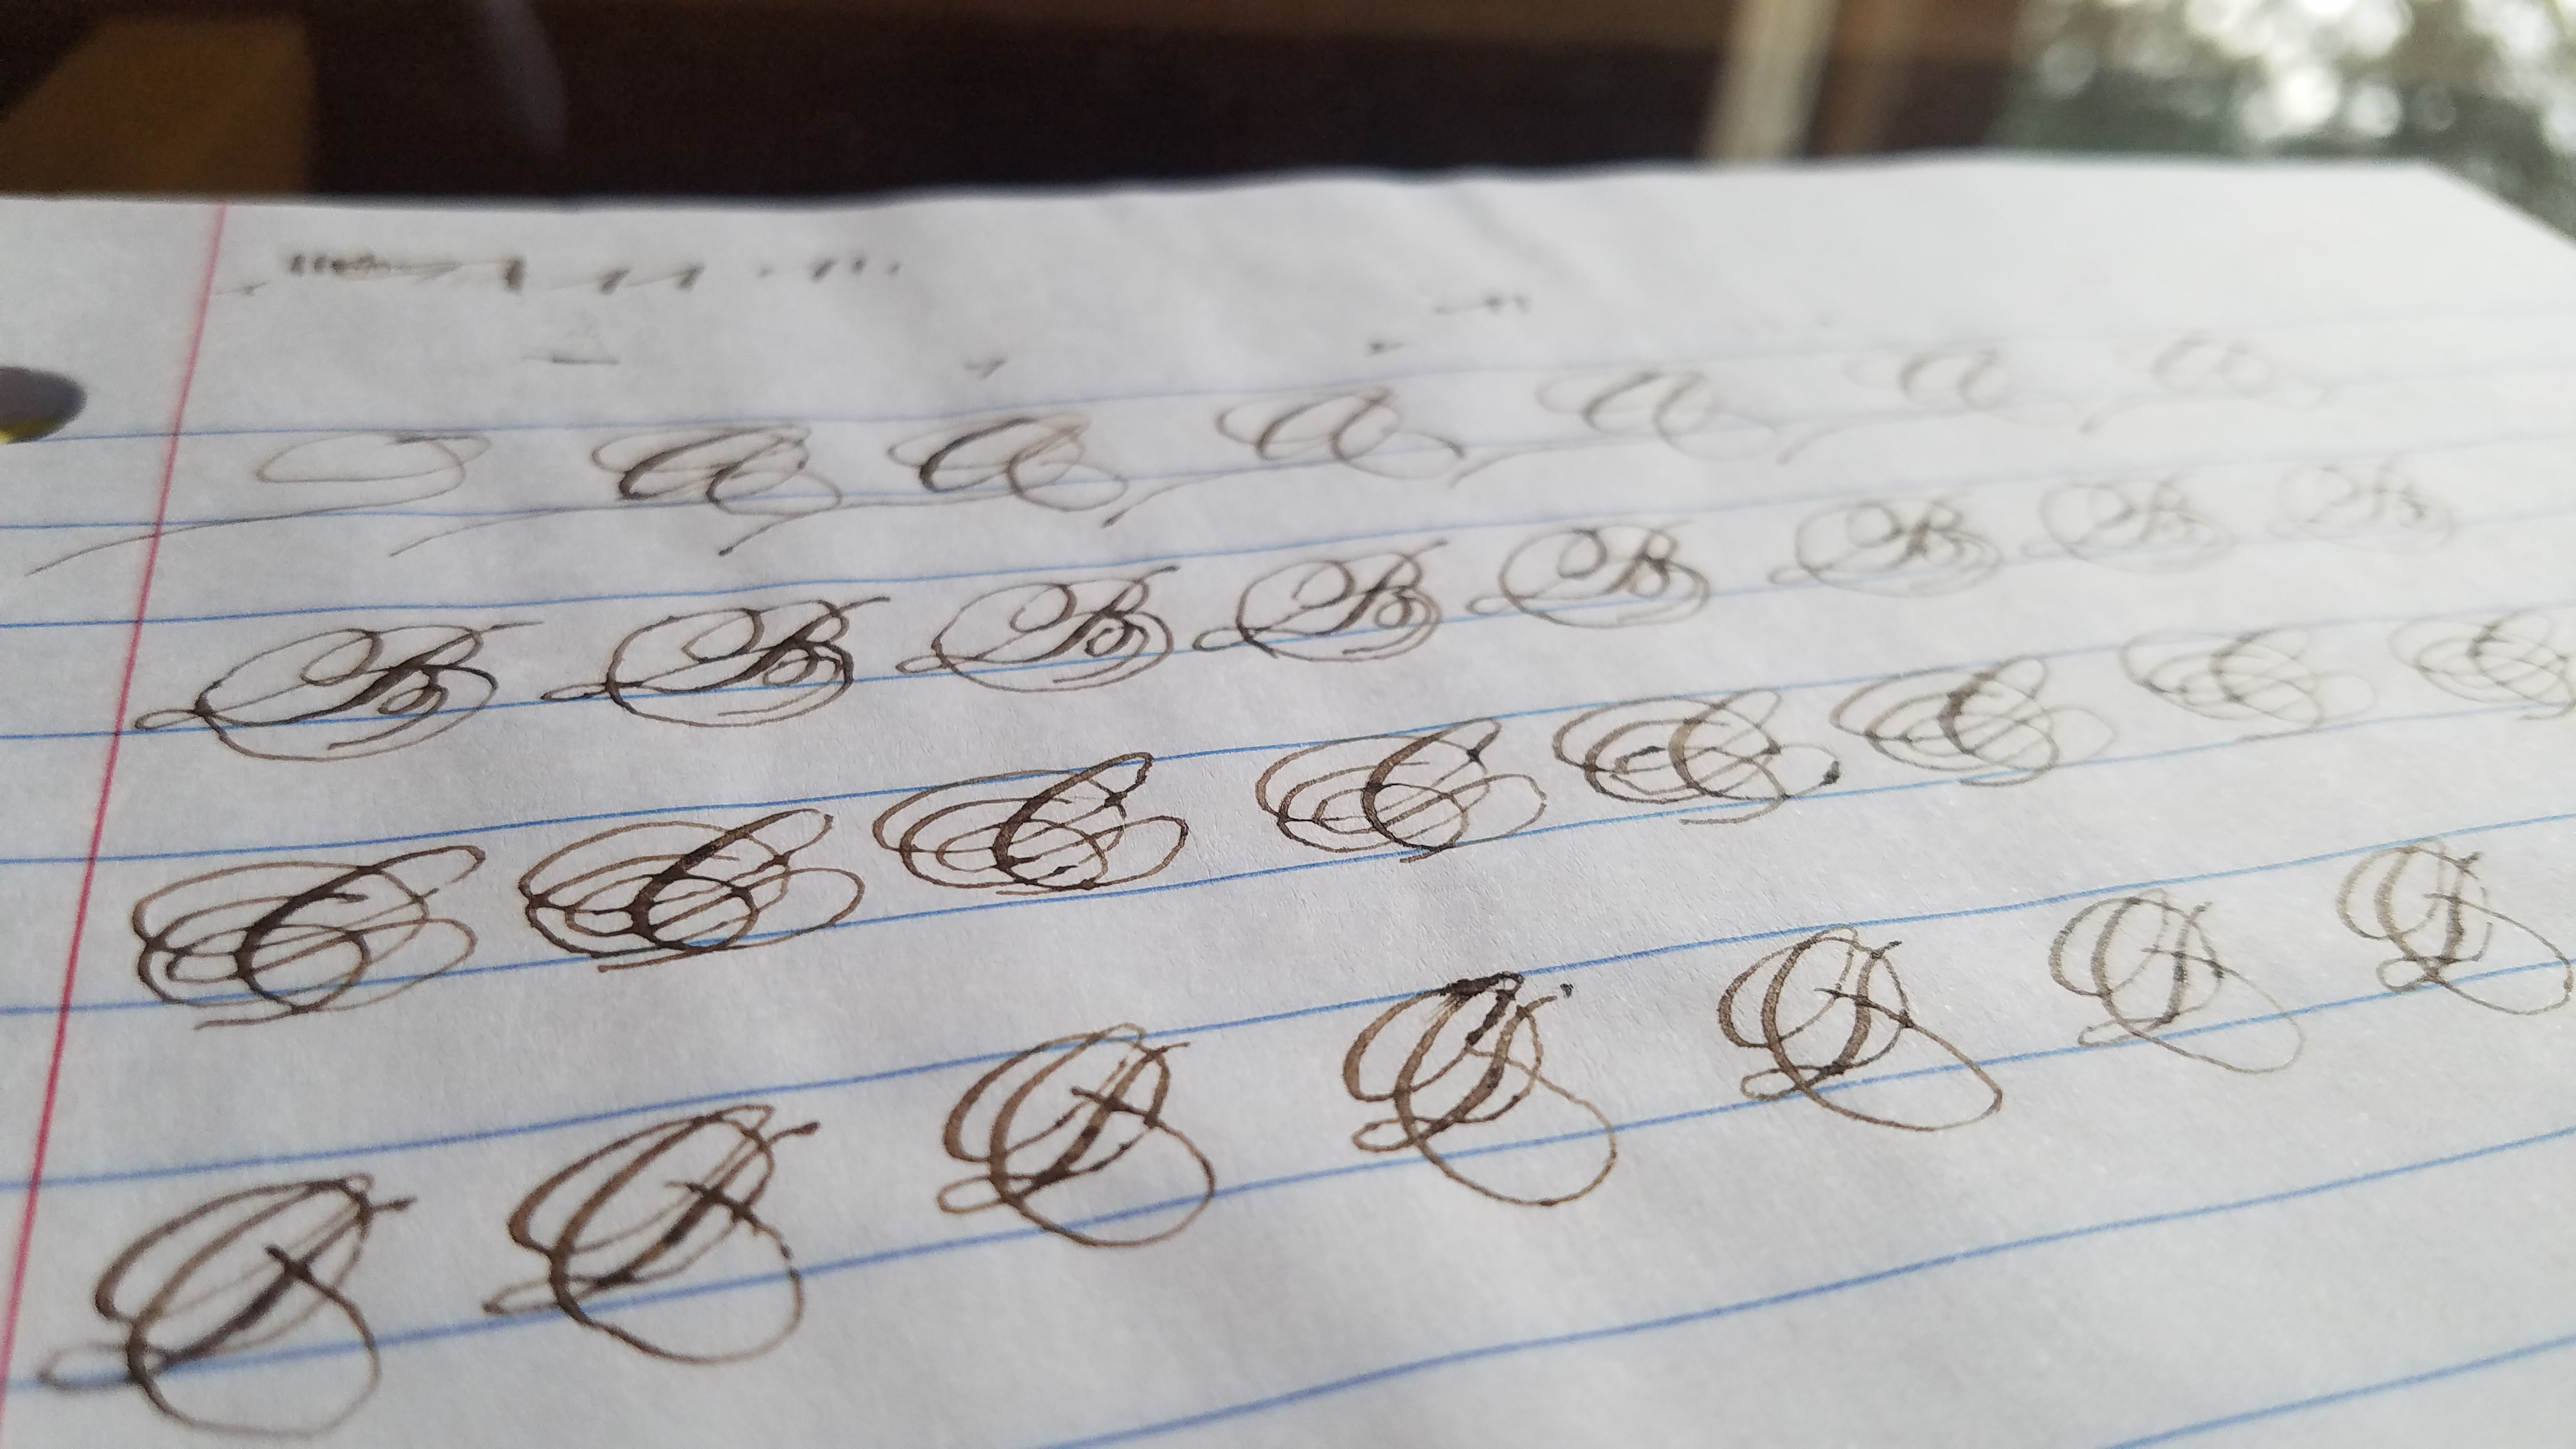 A A A A A A
B B B B B B B B
C C C C C C C C
D D D D D D D